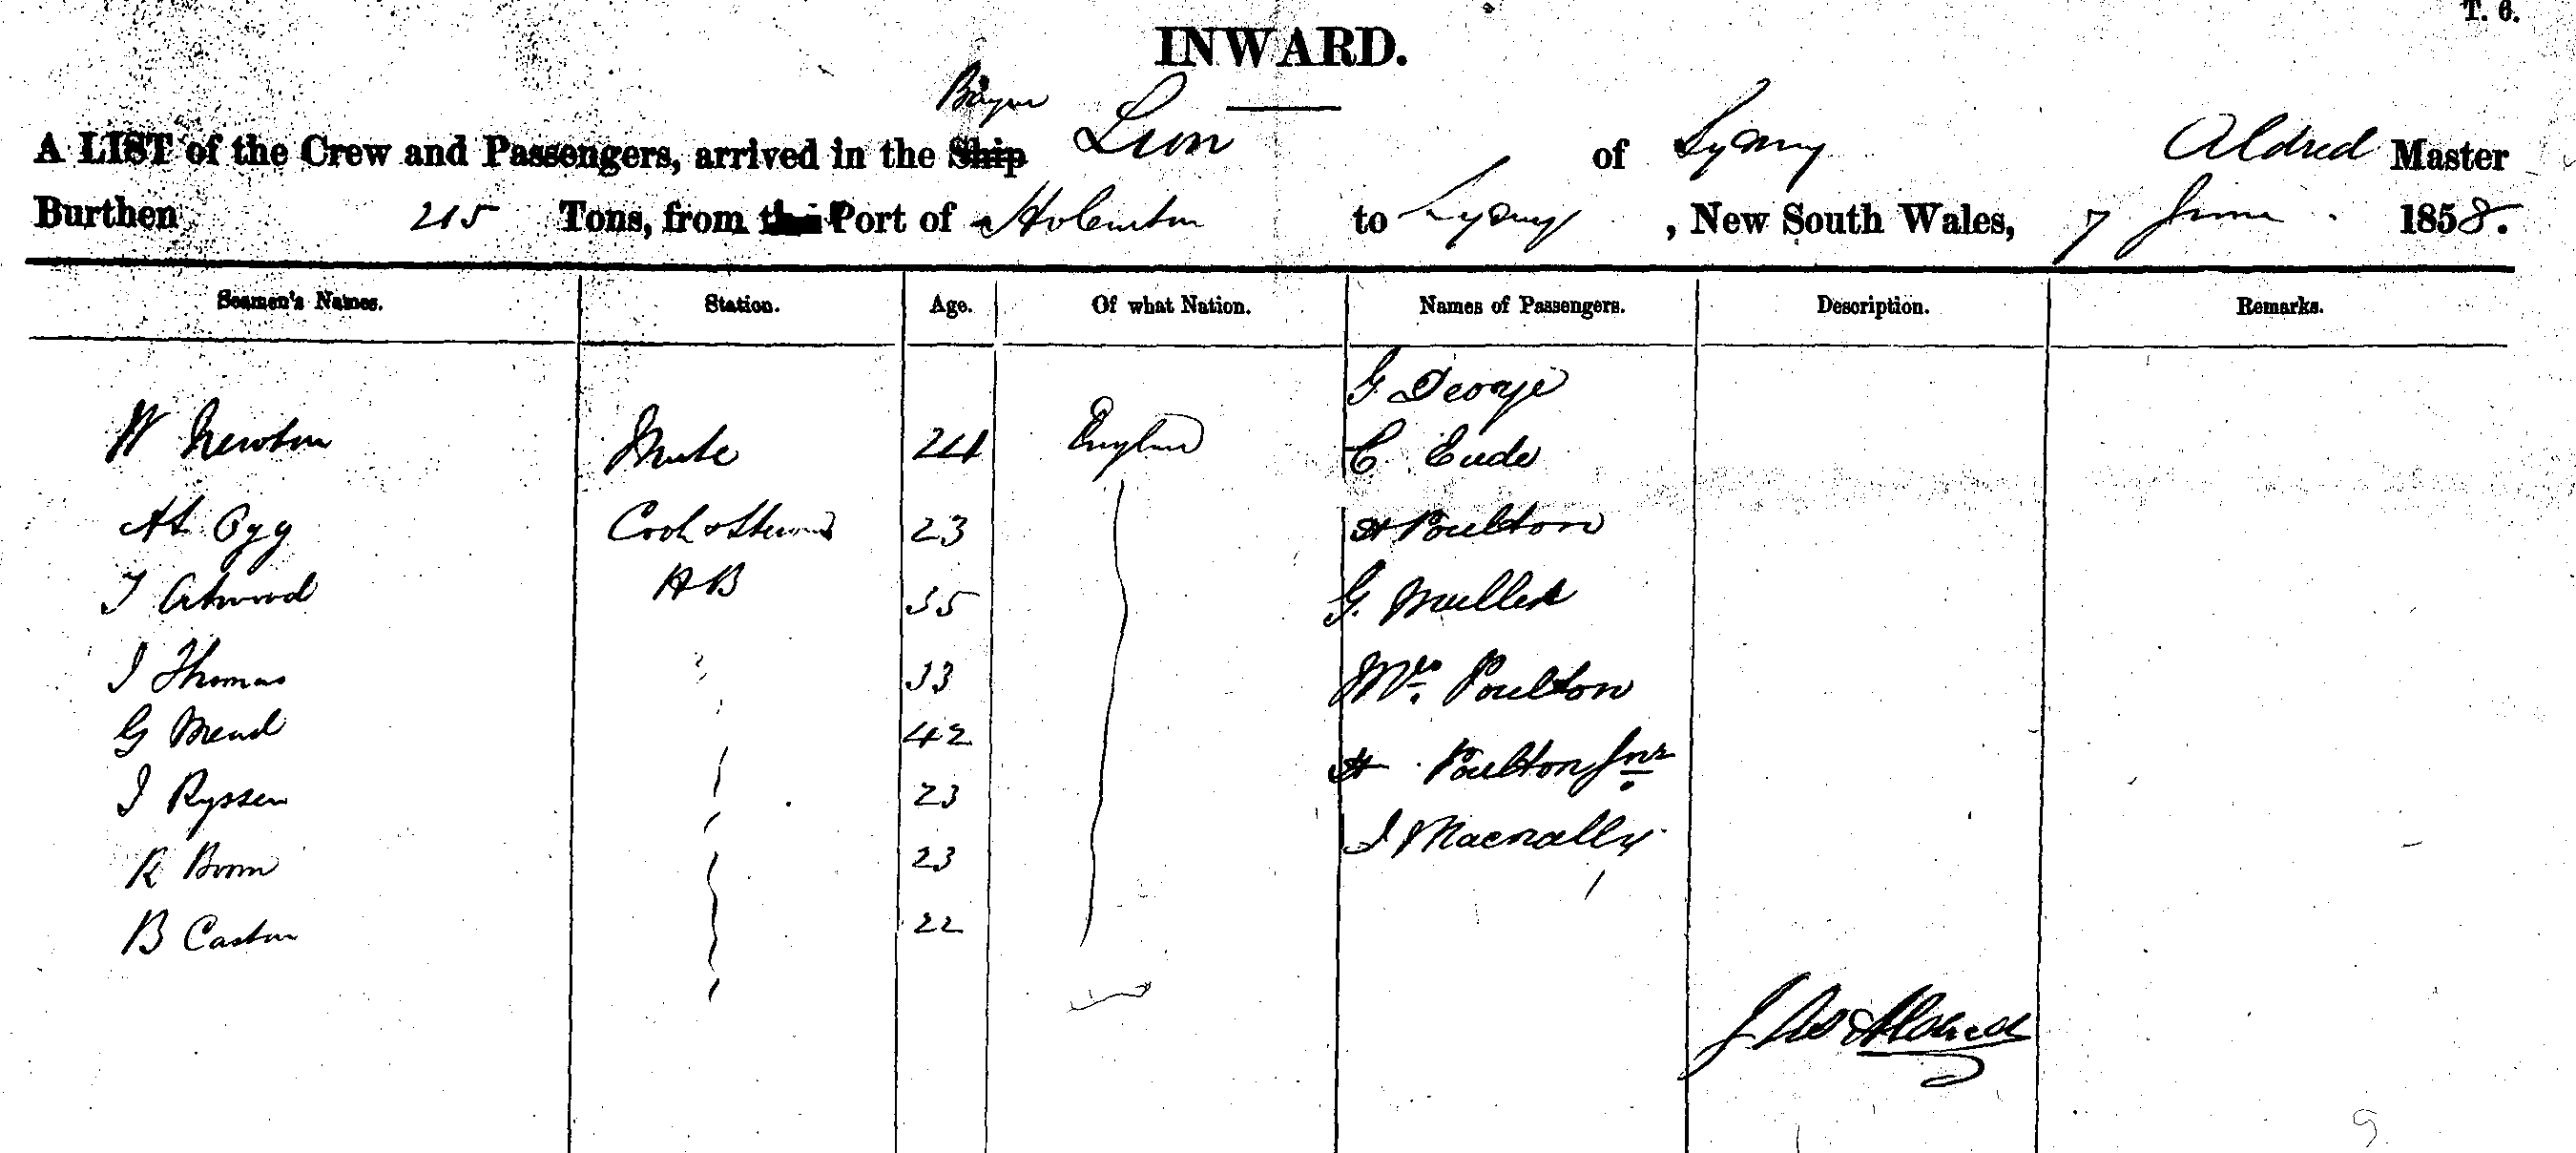 T. 6.
INWARD.
A LIST of the Crew and Passengers, arrived in the Ship Lion of Sydney Aldred Master
Burthen 215 Tons, from the Port of to Sydney, New South Wales, 7 June 1858.
Seamen's Names. Station. Age. Of what Nation. Names of Passengers. Description. Remarks.
G. George
W Newton Mate 24 England C Eude
Ogg Cook & Steward 23 H Poulton
J Atwood AB 35 G. Mullen
J Thomas 33 Mrs. Poulton
G Mead 42
H Poulton Jnr
J Ryssen 23
J Macnally
R 23
B Caston 22
Aldred